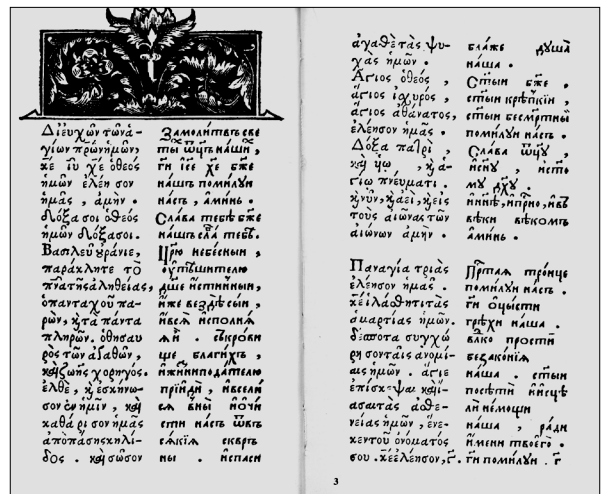 Διευχῶν τῶν ἁ-
γίων πρῶν ἡμῶν,
κε ιυ χε ὁθεός
ἡμῶν ἐλέησον
ἡμᾶς, ἀμήν.
Δόξα σοι ὁθεός
ἡμῶν δόξα σοι.
Βασιλεῦ οὐράνιε,
παράκλητε τὸ
πνα τῆς ἀληθείας,
ὁ πανταχοῦ πα-
ρὼν, κὶ τὰ πάντα
πληρῶν. ὁ θησαυ
ρὸς τῶν ἀγαθῶν,
καὶ ζωῆς χορηγος.
ἐλθὲ, κὶ ἐσκήνω-
σον ἐν ἡμῖν, καὶ
καθάρισον ἡμᾶς
ἀπὸ πάσης κηλί-
δος. καὶ σῶσον
Замолитвъ све
ты ѿцъ наши,
ги ісе хе бже
нашъ помилꙋи
насъ, аминь.
Слава тебѣ бже
нашъ сла тебѣ.
Црю небесныи,
ꙋтѣшителю
дше истинныи,
иже вездѣ сыи,
ивсѧ исполнѧ
ѧи. съкрови
ще благихъ,
ижизни подателю
прїиди, ивсели
сѧ вны иочи
сти насъ ѿвъ
сѧкїѧ скврь
ны. испаси
ἀγαθὲ τὰς ψυ-
χὰς ἡμῶν.
Ἅγιος ὁθεός,
ἅγιος ἰχυρός,
ἅγιος ἀθάνατος,
ἐλέησον ἡμας.
Δόξα πατρὶ,
καὶ ὑῷ, κὶ ἁ-
γίῳ πνεύματι.
κὶ νῦν, κὶ ἀεὶ, κὶ εἰς
τοὺς αἰῶνας τῶν
αἰώνων ἀμήν.
Παναγία τριὰς
ἐλέησον ἡμᾶς.
κε ἱλάσθητι τὰς
ἁμαρτίας ἡμῶν.
δέσποτα συγχώ
ρησον ταὶς ἀνομί-
αις ἡμῶν. ἅγιε
ἐπίσκεψαι καὶ ἴ-
ασαι τὰς ἀσθε-
νείας ἡμῶν, ἕνε-
κεν τοῦ ὀνόματος
σου. κε ἐλέησον, γ.
блаже дꙋшѧ
наша.
Стыи бже,
стыи крѣпкїи,
стыи бесмртныи
помилꙋи насъ.
Слава ѿцꙋ,
иснꙋ, исто
мꙋ дхꙋ.
иннѣ, ипрно, ивъ
вѣки вѣкомъ
аминь.
Прстаѧ троице
помилꙋи насъ.
ги оцысти
грѣхи наша.
влко прости
безаконїѧ
наша. стыи
посѣти иисцѣ
ли немощи
наша, ради
имени твоего.
ги помилꙋи. г
3